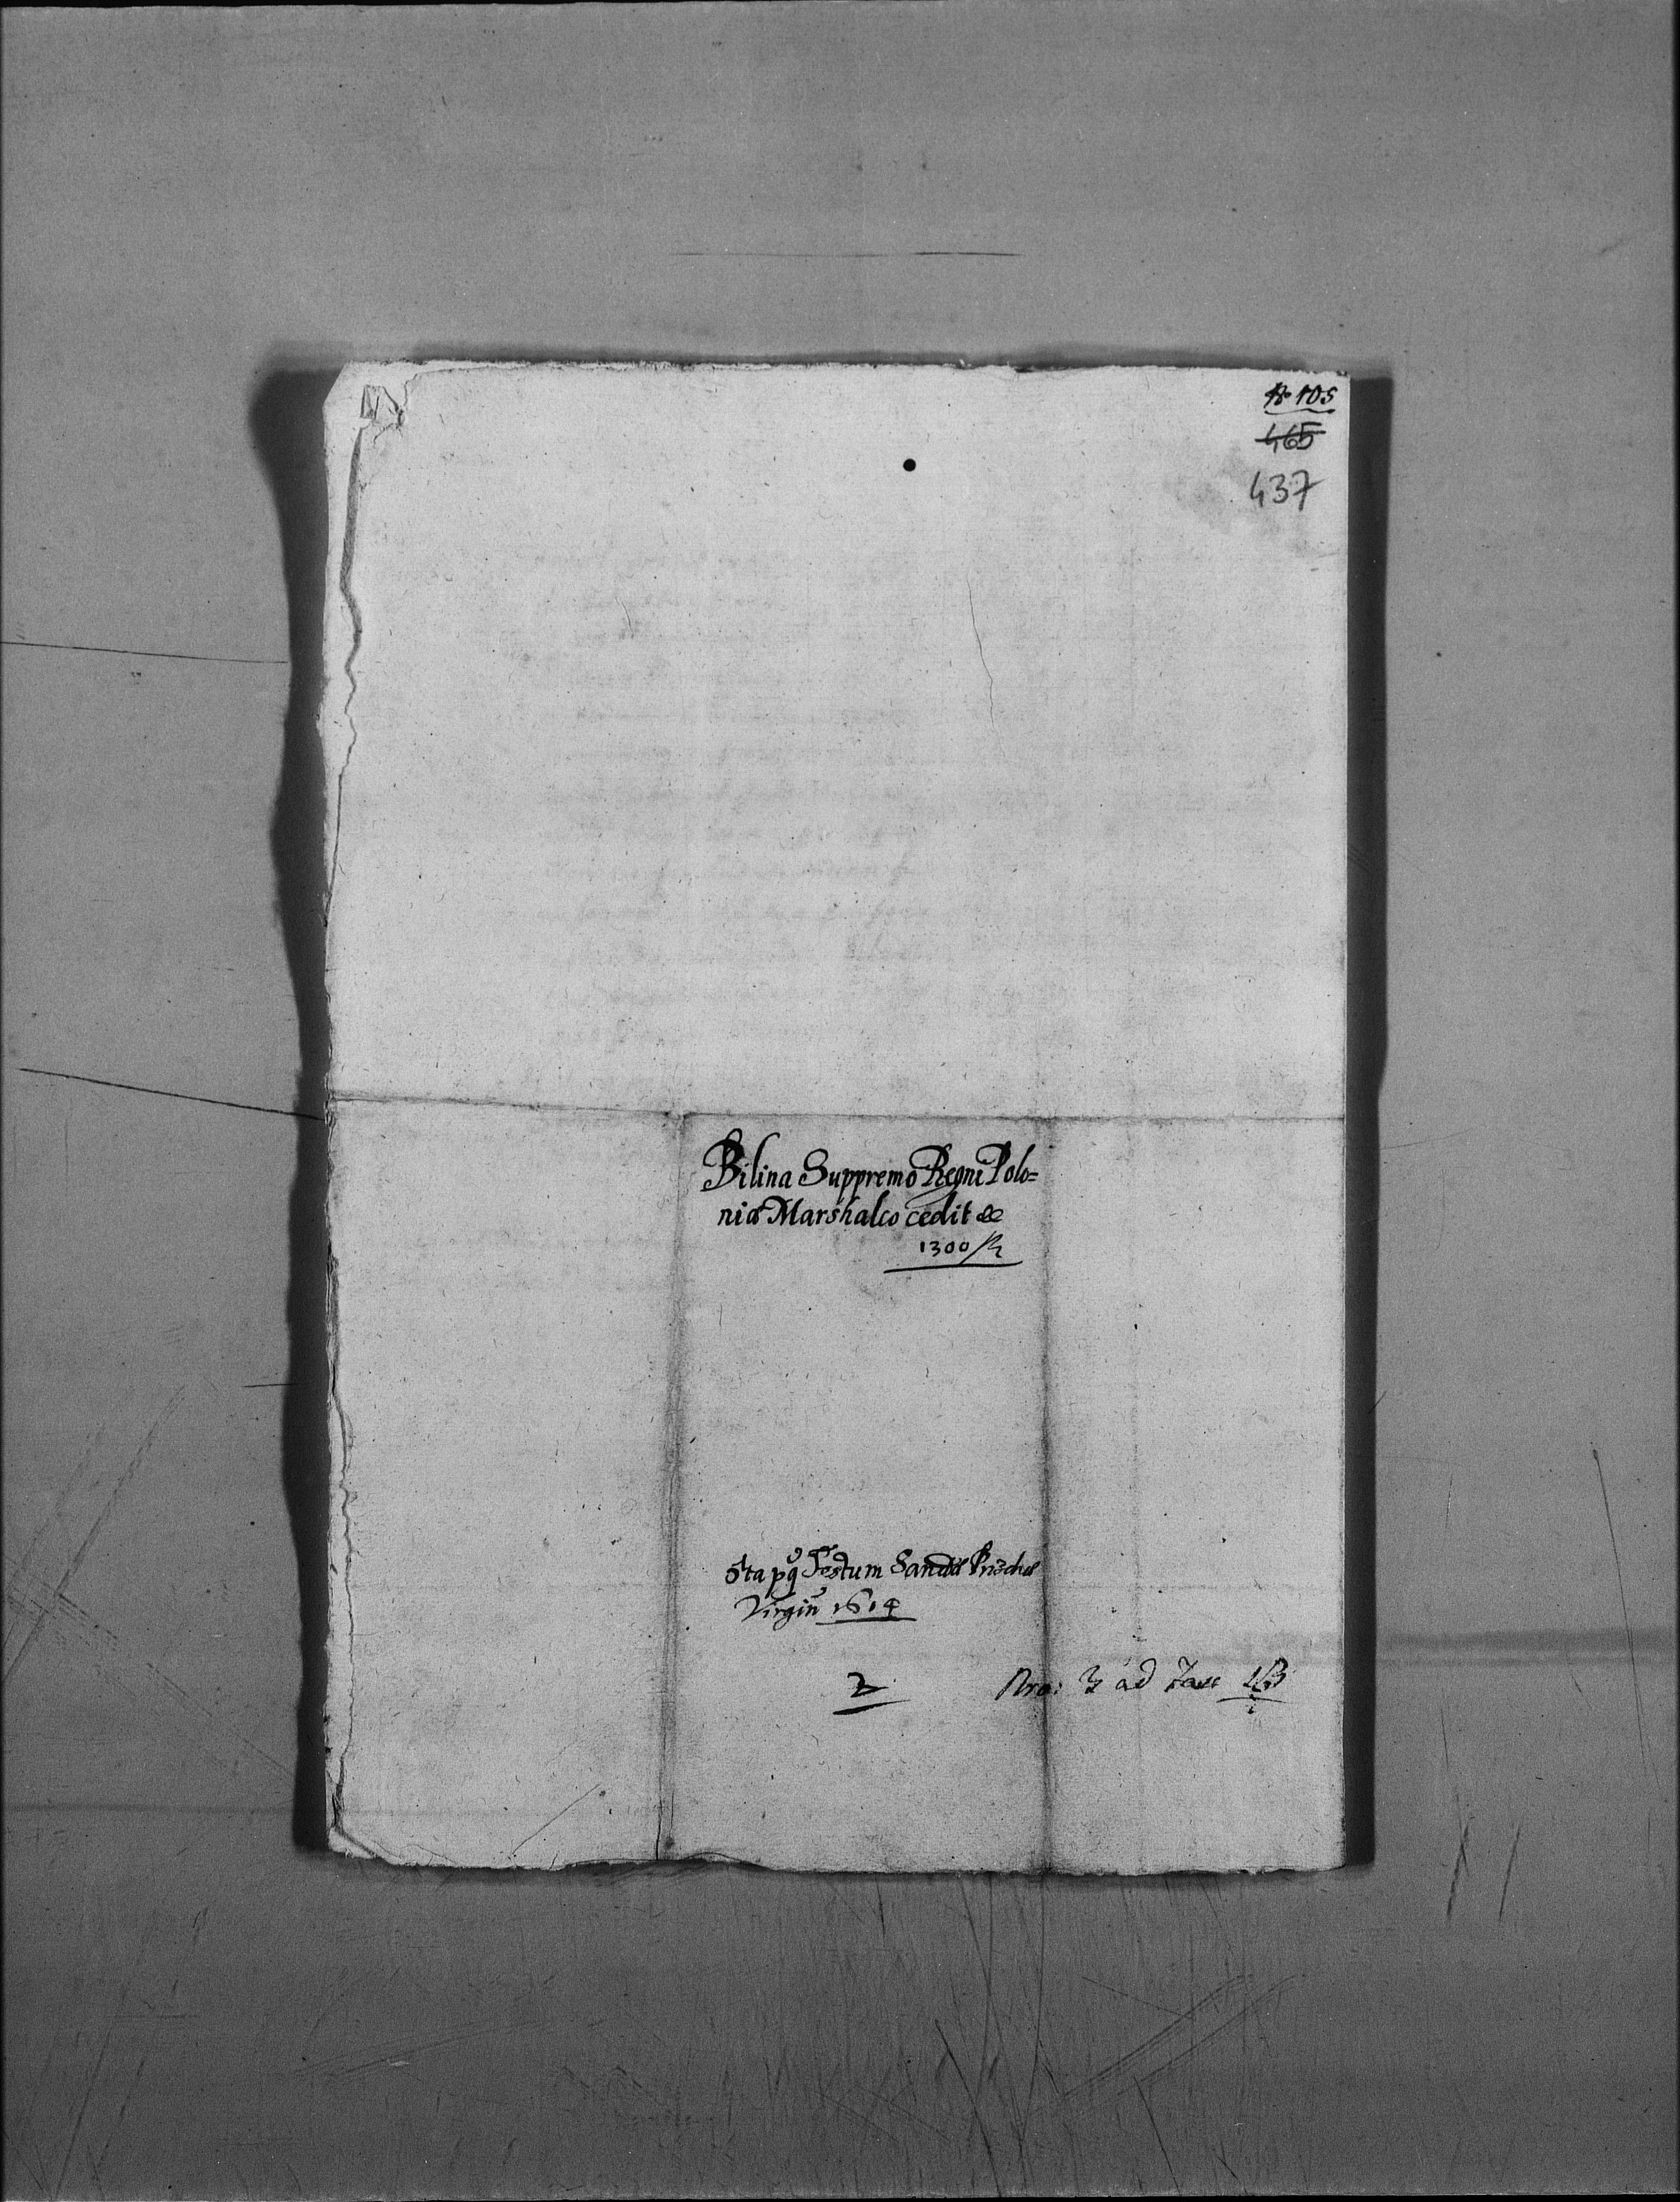 № 105
465
437
Bilina Suppremo Regni Polo=
niæ Marshalco cedit de
1300
5ta pq̃ Festum Sanctæ Prischæ
Virgin̄ 1614
2
Nro: 3 ad Fasc